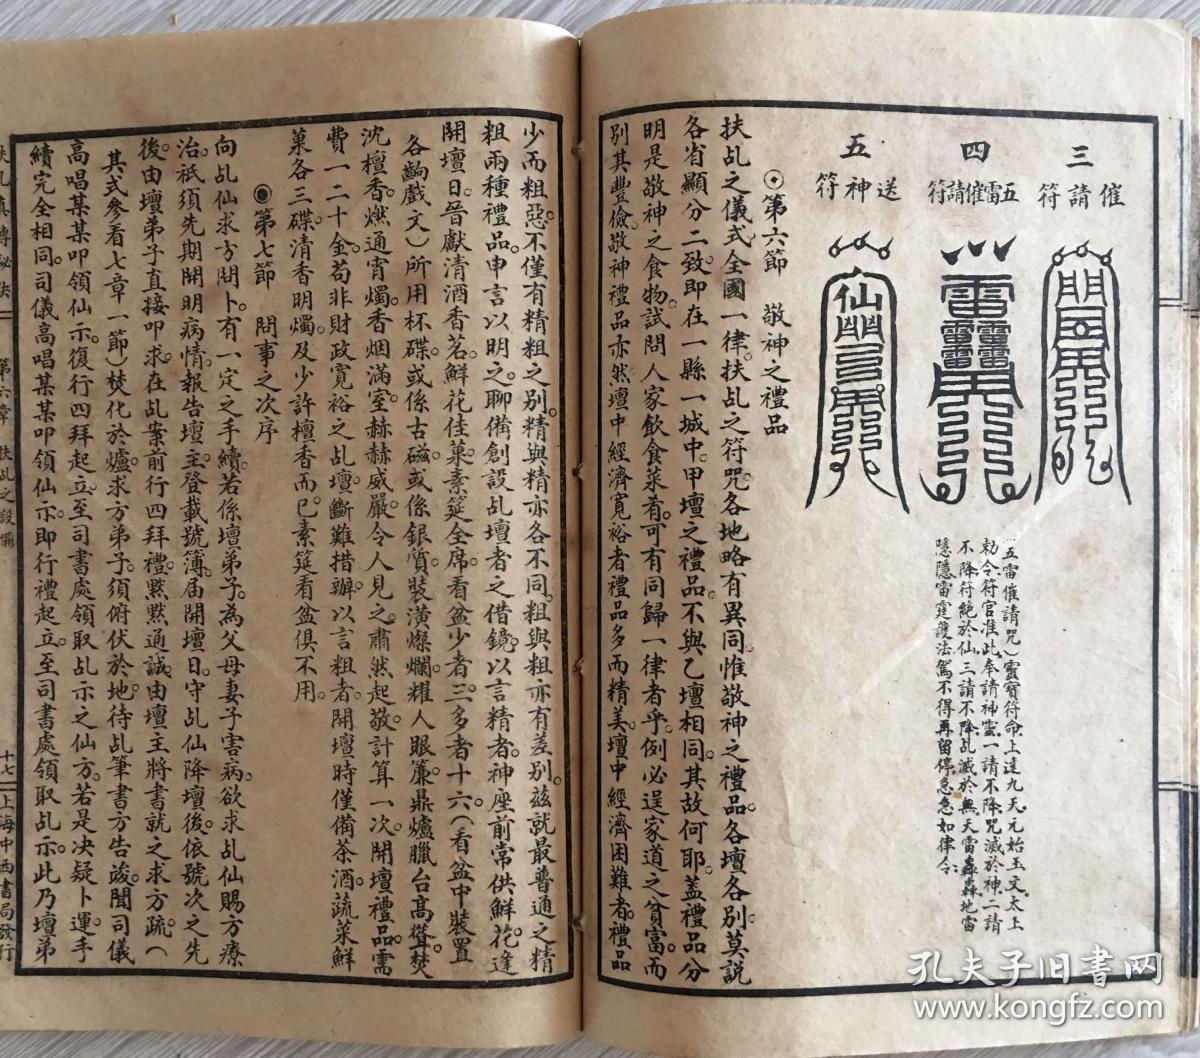 三
催請符
四
五雷催請符
五
送神符
(五雷催請咒)靈寶符命上達九天元始玉文太上
勅令符官准此奉請神靈一請不降咒滅於神二請
不降符絕於仙三請不降乩滅於無天雷轟轟地雷
隱隱雷霆護法駕不得再留停急急如律令
⊙第六節 敬神之禮品
扶乩之儀式全國一律扶乩之符咒各地略有異同惟敬神之禮品各壇各別莫說
各省顯分二致即在一縣一城中甲壇之禮品不與乙壇相同其故何耶蓋禮品分
明是敬神之食物試問人家飲食菜肴可有同歸一律者乎例必逞家道之貧富而
別其豐儉敬神禮品亦然壇中經濟寬裕者禮品多而精美壇中經濟困難者禮品
少而粗惡不僅有精粗之別精與精亦各不同粗與粗亦有差別茲就最普通之精
粗兩種禮品申言以明之聊備創設乩壇者之借鏡以言精者神座前常供鮮花逢
開壇日晉獻清酒香茗鮮花佳菓素筵全席看盆少者三多者十六(看盆中裝置
各齣戲文)所用杯碟或係古磁或係銀質裝潢燦爛耀人眼簾鼎爐臘台高聳焚
沈檀香燃通宵燭香烟滿室赫赫威嚴令人見之肅然起敬計算一次開壇禮品需
費一二十金苟非財政寬裕之乩壇斷難措辦以言粗者開壇時僅備茶酒蔬菜鮮
菓各三碟清香明燭及少許檀香而已素筵看盆俱不用
◉第七節 問事之次序
向乩仙求方問卜有一定之手續若係壇弟子為父母妻子害病欲求乩仙賜方療
治祇須先期開明病情報告壇主登載號簿屆開壇日守乩仙降壇後依號次之先
後由壇弟子直接叩求在乩案前行四拜禮默默通誠由壇主將書就之求方疏(
其式參看七章一節)焚化於爐求方弟子須俯伏於地待乩筆書方告竣聞司儀
高唱某某叩領仙示復行四拜起立至司書處領取乩示之仙方若是决疑卜運手
續完全相同司儀高唱某某叩領仙示即行禮起立至司書處領取乩示此乃壇弟
扶乩真傳秘訣
第六章 扶乩之設備
十七
上海中西書局發行
孔夫子旧书网
www.kongfz.com